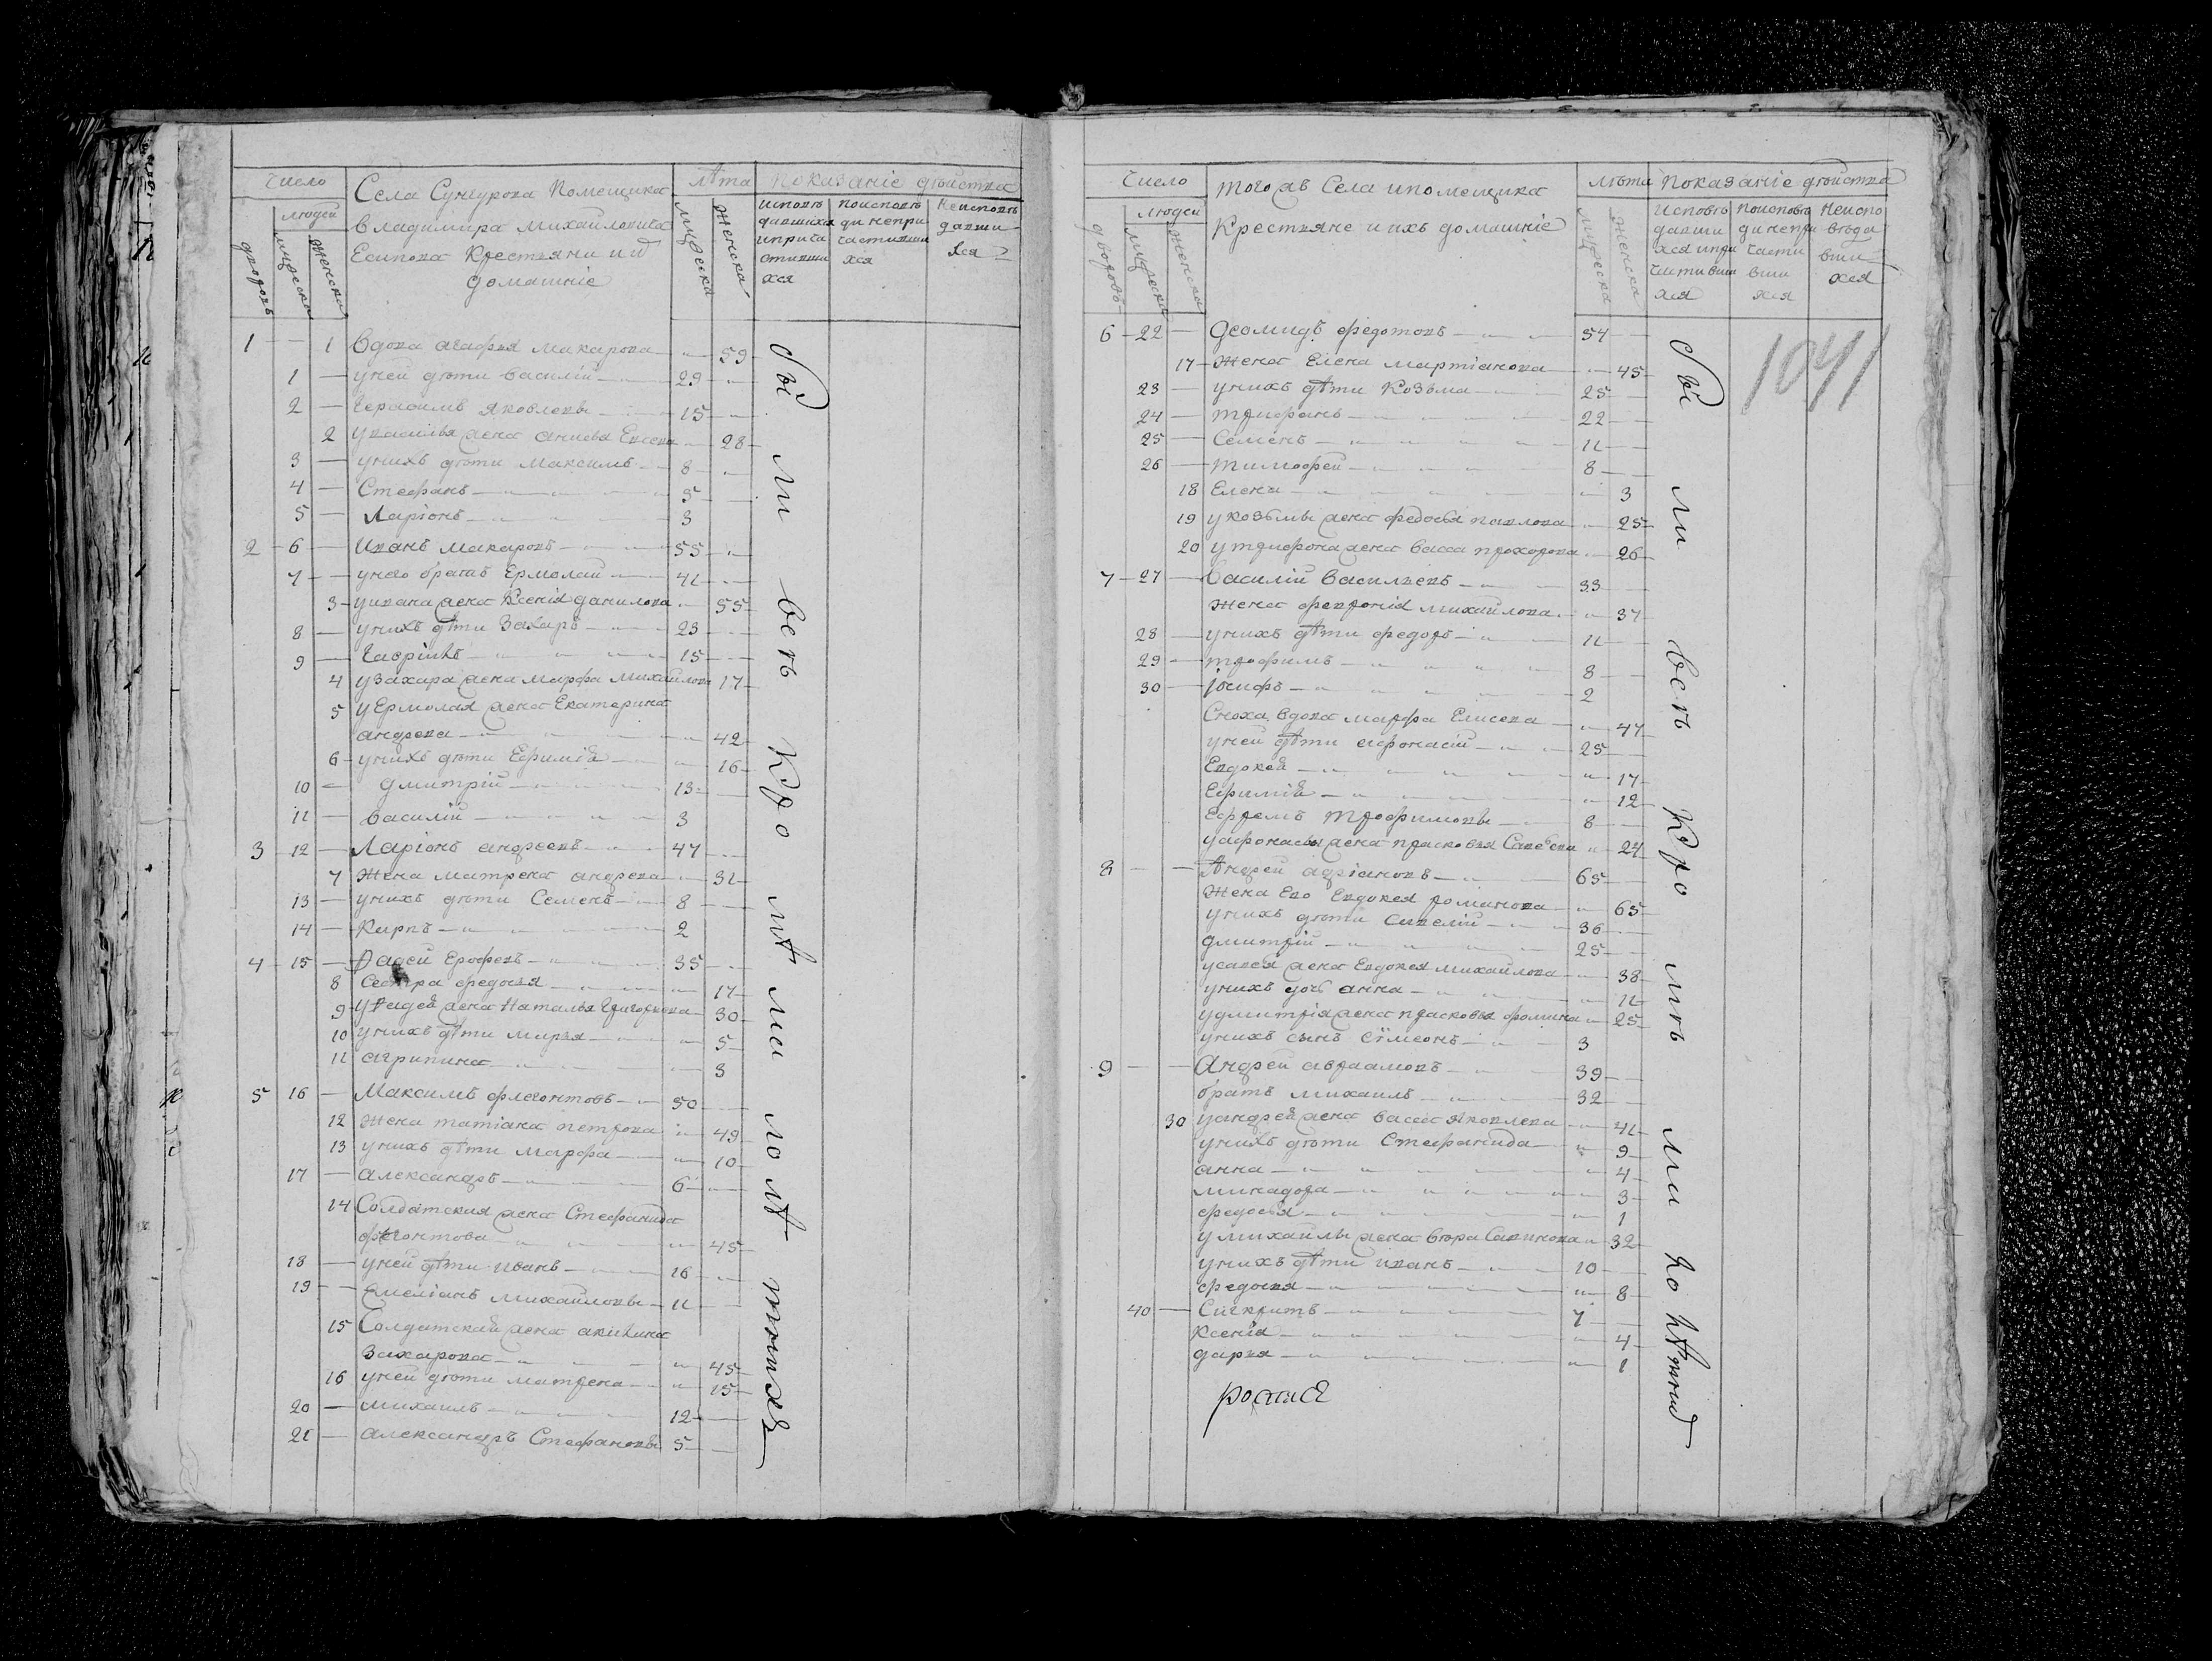 Число
людей
дворовъ
мужеска
женска
Села Сунгурова Помещика
Владимира Михайловича
Есипова Крестьяни и ихъ
домашніе
лѣта
мужеска
женска
Показаніе действа
исповѣдавшихся и причастившихся
по исповѣди непричастившихся
неисповѣдавшихся
1 — 1 Вдова агафья Макарова 59
1 — у ней дѣти василій 29
2 — Герасимъ яковлевы 15
2 у василья жена анисья 28
3 — у нихъ дѣти Максимъ 8
4 — Стефанъ 5
5 — Ларіонъ 3
2 — 6 — Иванъ Макаровъ 55
7 — у него братъ Ермолай 41
3 — у ивана жена Ксенія данилова 55
8 — у нихъ дѣти Захаръ 23
9 — Гаврііль 15
4 у Захара жена Марфа Михайлова 17
5 у Ермолая жена Екатерина
андреева 42
6 — у нихъ дѣти Ефимія 16
10 — дмитрій 13
11 — василій 3
3 — 12 — Ларіонъ андреевъ 47
7 жена матрена андрева 31
13 — у нихъ дѣти Семенъ 8
14 — Карпъ 2
4 — 15 — Фадей Ерофевъ 35
8 Сестра федосья 17
9 — у Фадея жена Наталья Григорьева 30
10 у нихъ дѣти марья 5
11 агрипина 3
5 16 — Максимъ флегонтовъ 50
12 жена татіана петрова 49
13 у нихъ дѣти Марфа 10
17 — александръ 6
14 Солдатская жена Стефанида
флегонтова 45
18 — у ней дѣти иванъ 16
19 — Емеліанъ михайловы 11
15 Солдатская жена акилина
Захарова 45
16 у ней дѣти матрена 15
20 — михаилъ 12
21 — александръ Стефановы 5
Число
людей
дворовъ
мужеска
женска
того жъ Села и помещика
Крестьяне и ихъ домашніе
лѣта
мужеска
женска
Показаніе действа
Исповѣдавшихся и причастившихся
по исповѣди непричастившихся
Неисповѣдавшихся
1041
6 — 22 — Деомидъ федотовъ 54
17 — жена Елена мартіанова 45
23 — у нихъ дѣти Козьма 25
24 — трифанъ 22
25 — Семенъ 11
26 — тимофей 8
18 Елена 3
19 у козьмы жена федосья павлова 25
20 у трифона жена васса прохорова 26
7 — 27 — Василій Васильевъ 33
жена февронія михайлова 37
28 — у нихъ дѣти федоръ 11
29 — трофимъ 8
30 — іосифъ 2
Сноха вдова марфа Елисева 47
у ней дѣти афонасій 25
Евдокея 17
Ефимія 12
Ефремъ трофимовы 8
у афонасья жена прасковья 24
8 — Андрей адріановъ 65
жена Ево Евдокея романова 65
у нихъ дѣти савелій 36
дмитрій 25
у савелья жена Евдокея михайлова 38
у нихъ дочь анна 11
у дмитрія жена прасковья фомина 25
у нихъ сынъ сѵмеонъ 3
9 — Андрей авраамовъ 39
братъ михаилъ 32
30 у андрея жена васса яковлева 41
у нихъ дѣти Стефанида 9
анна 4
минадора 3
федосья 1
у михаилы жена вѣра Савинова 32
у нихъ дѣти иванъ 10
федосья 8
40 — 7
Ксенія 4
дарья 1